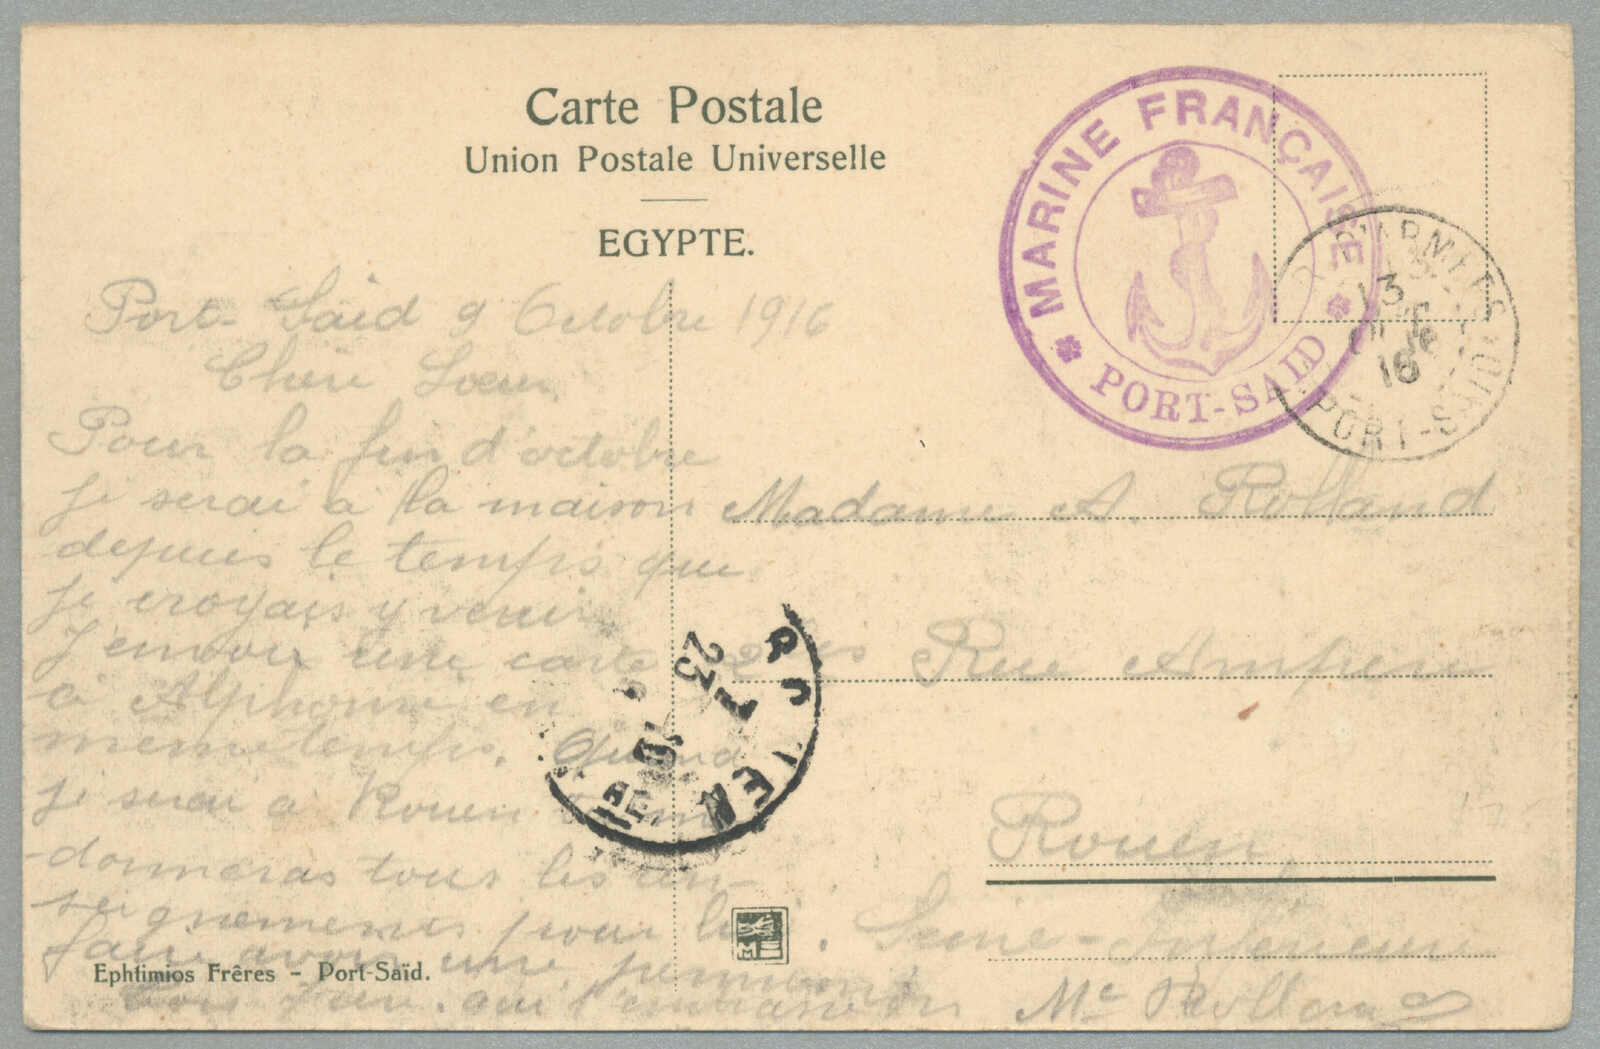 Carte Postale
Union Postale Universelle
EGYPTE.
MARINE FRANÇAISE
PORT-SAID
D'ARMEES
13
OCT
16
PORT-SAID
Port Saïd 9 Octobre 1916
Chère Soeur
Pour la fin d'octobre
je serai a la maison
depuis le temps que
je croyais y venir
J'envoie une carte
à Alphonse en
meme temps. Quand
je serai a Rouen
donneras tous les ren-
seignements pour lui
faire avoir une permission
qui t'embrasse
Madame A. Rolland
Rue Ampère
Rouen
Seine-Inférieure
Mce Rolland
ROUEN
23
16
ME
Ephtimios Frères - Port-Saïd.